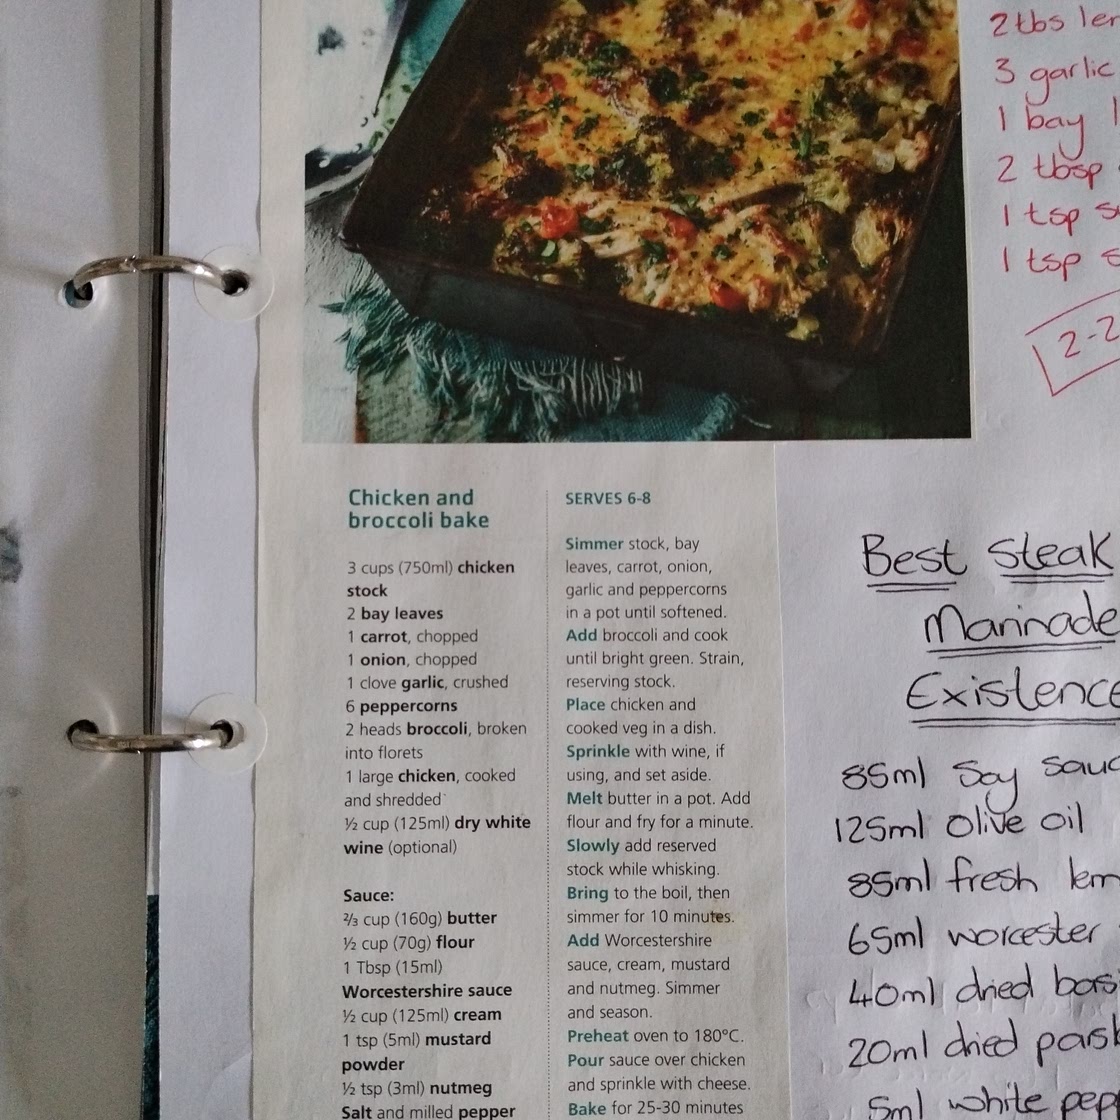 2 tbs
3 garlic
1 bay
2 tbsp
1 tsp
1 tsp
Chicken and
broccoli bake
3 cups (750ml) chicken
stock
2 bay leaves
1 carrot, chopped
1 onion, chopped
1 clove garlic, crushed
6 peppercorns
2 heads broccoli, broken
into florets
1 large chicken, cooked
and shredded
½ cup (125ml) dry white
wine (optional)
Sauce:
⅔ cup (160g) butter
½ cup (70g) flour
1 Tbsp (15ml)
Worcestershire sauce
½ cup (125ml) cream
1 tsp (5ml) mustard
powder
½ tsp (3ml) nutmeg
Salt and milled pepper
SERVES 6-8
Simmer stock, bay
leaves, carrot, onion,
garlic and peppercorns
in a pot until softened.
Add broccoli and cook
until bright green. Strain,
reserving stock.
Place chicken and
cooked veg in a dish.
Sprinkle with wine, if
using, and set aside.
Melt butter in a pot. Add
flour and fry for a minute.
Slowly add reserved
stock while whisking.
Bring to the boil, then
simmer for 10 minutes.
Add Worcestershire
sauce, cream, mustard
and nutmeg. Simmer
and season.
Preheat oven to 180°C.
Pour sauce over chicken
and sprinkle with cheese.
Bake for 25-30 minutes
Best Steak
Marinade
Existence
85ml Soy
125ml olive oil
85ml fresh
65ml worcester
40ml dried
20ml dried
5ml white